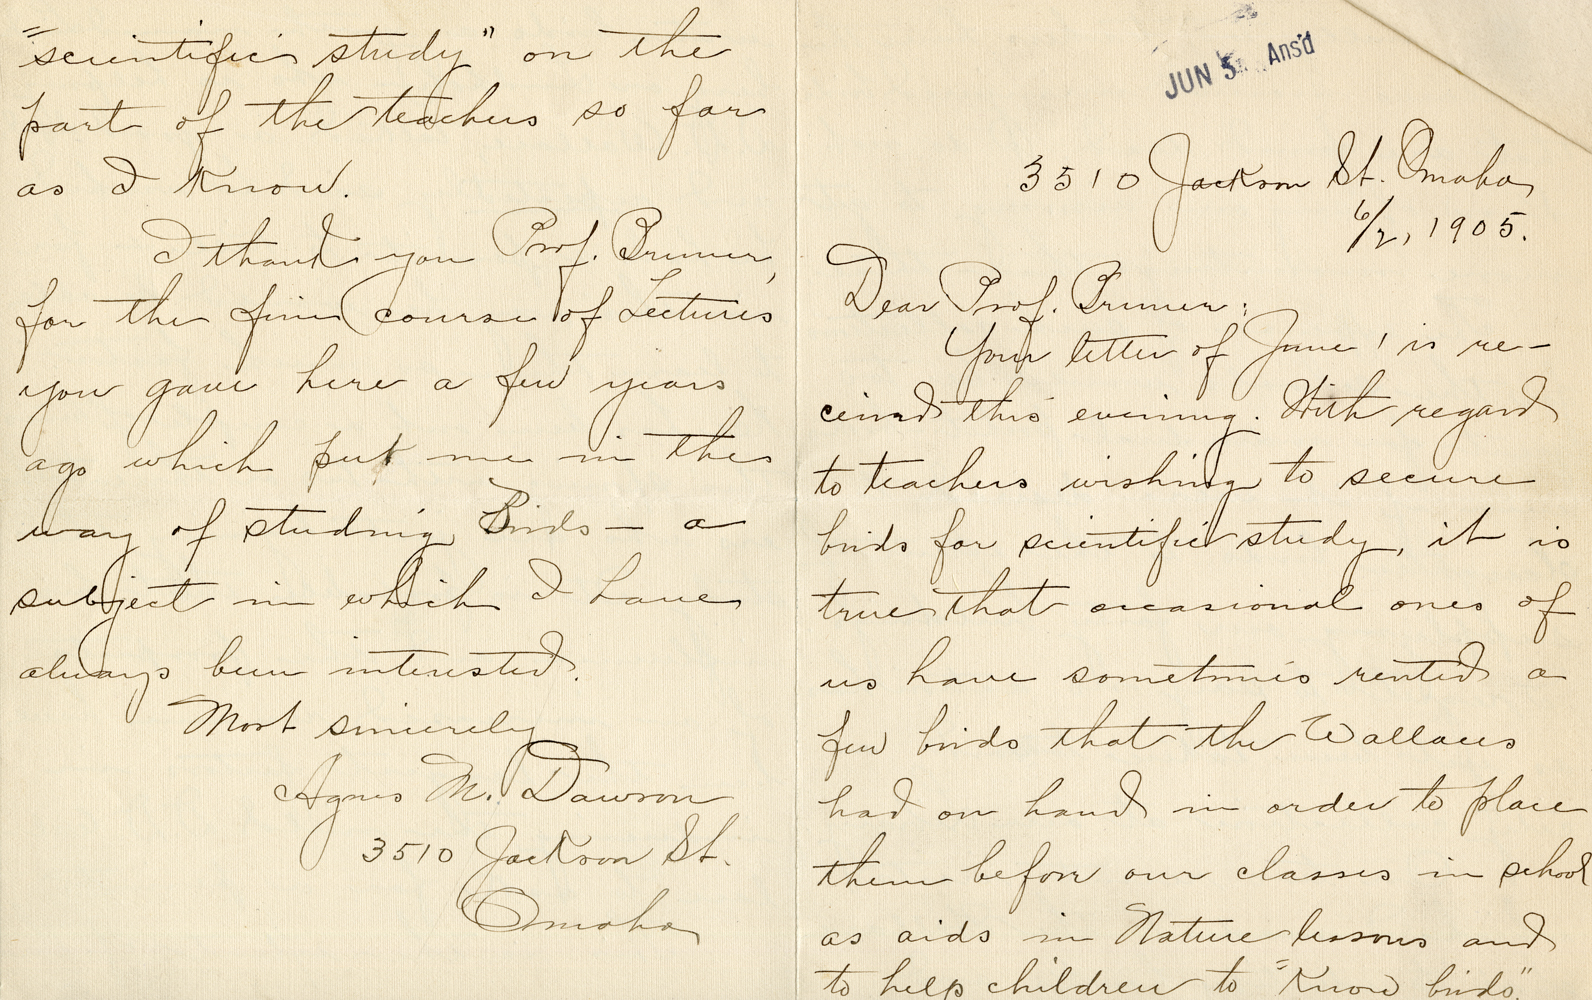 JUN 5 Ans'd
3510 Jackson St. Omaha
6/2, 1905.
Dear Prof. Bruner:
Your letter of June 1 is re-
ceived this evening. With regard
to teachers wishing to secure
birds for scientific study, it is
true that occasional ones of
us have sometimes rented a
few birds that the Wallaces
had on hand in order to place
them before our classes in school
as aids in Nature lessons and
to help children to "Know birds"
"scientific study" on the
part of the teachers so far
as I know.
I thank you Prof. Bruner,
for the fine course of Lectures
you gave here a few years
ago which put me in the
way of studing Birds — a
subject in which I have
always been interested.
Most sincerely
Agnes M. Dawson
3510 Jackson St.
Omaha